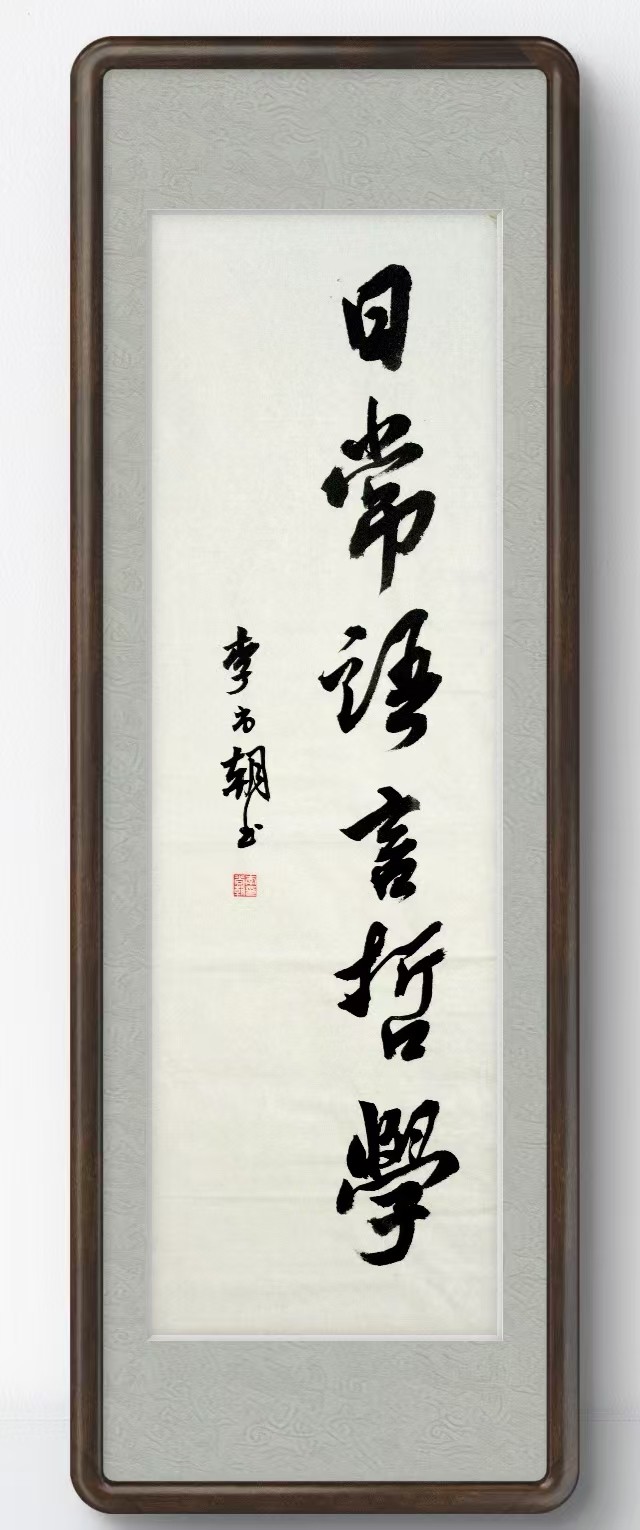 日常語言哲學
李方朝书